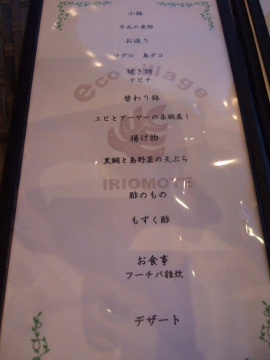 小鉢
お造り
マグロ 島ダコ
焼き物
ecovillage
替わり鉢
エビとアーサーの茶碗蒸し
揚げ物
黒鯛と島野菜の天ぷら
IRIOMOTE
酢のもの
もずく酢
お食事
フーチバ雑炊
デザート